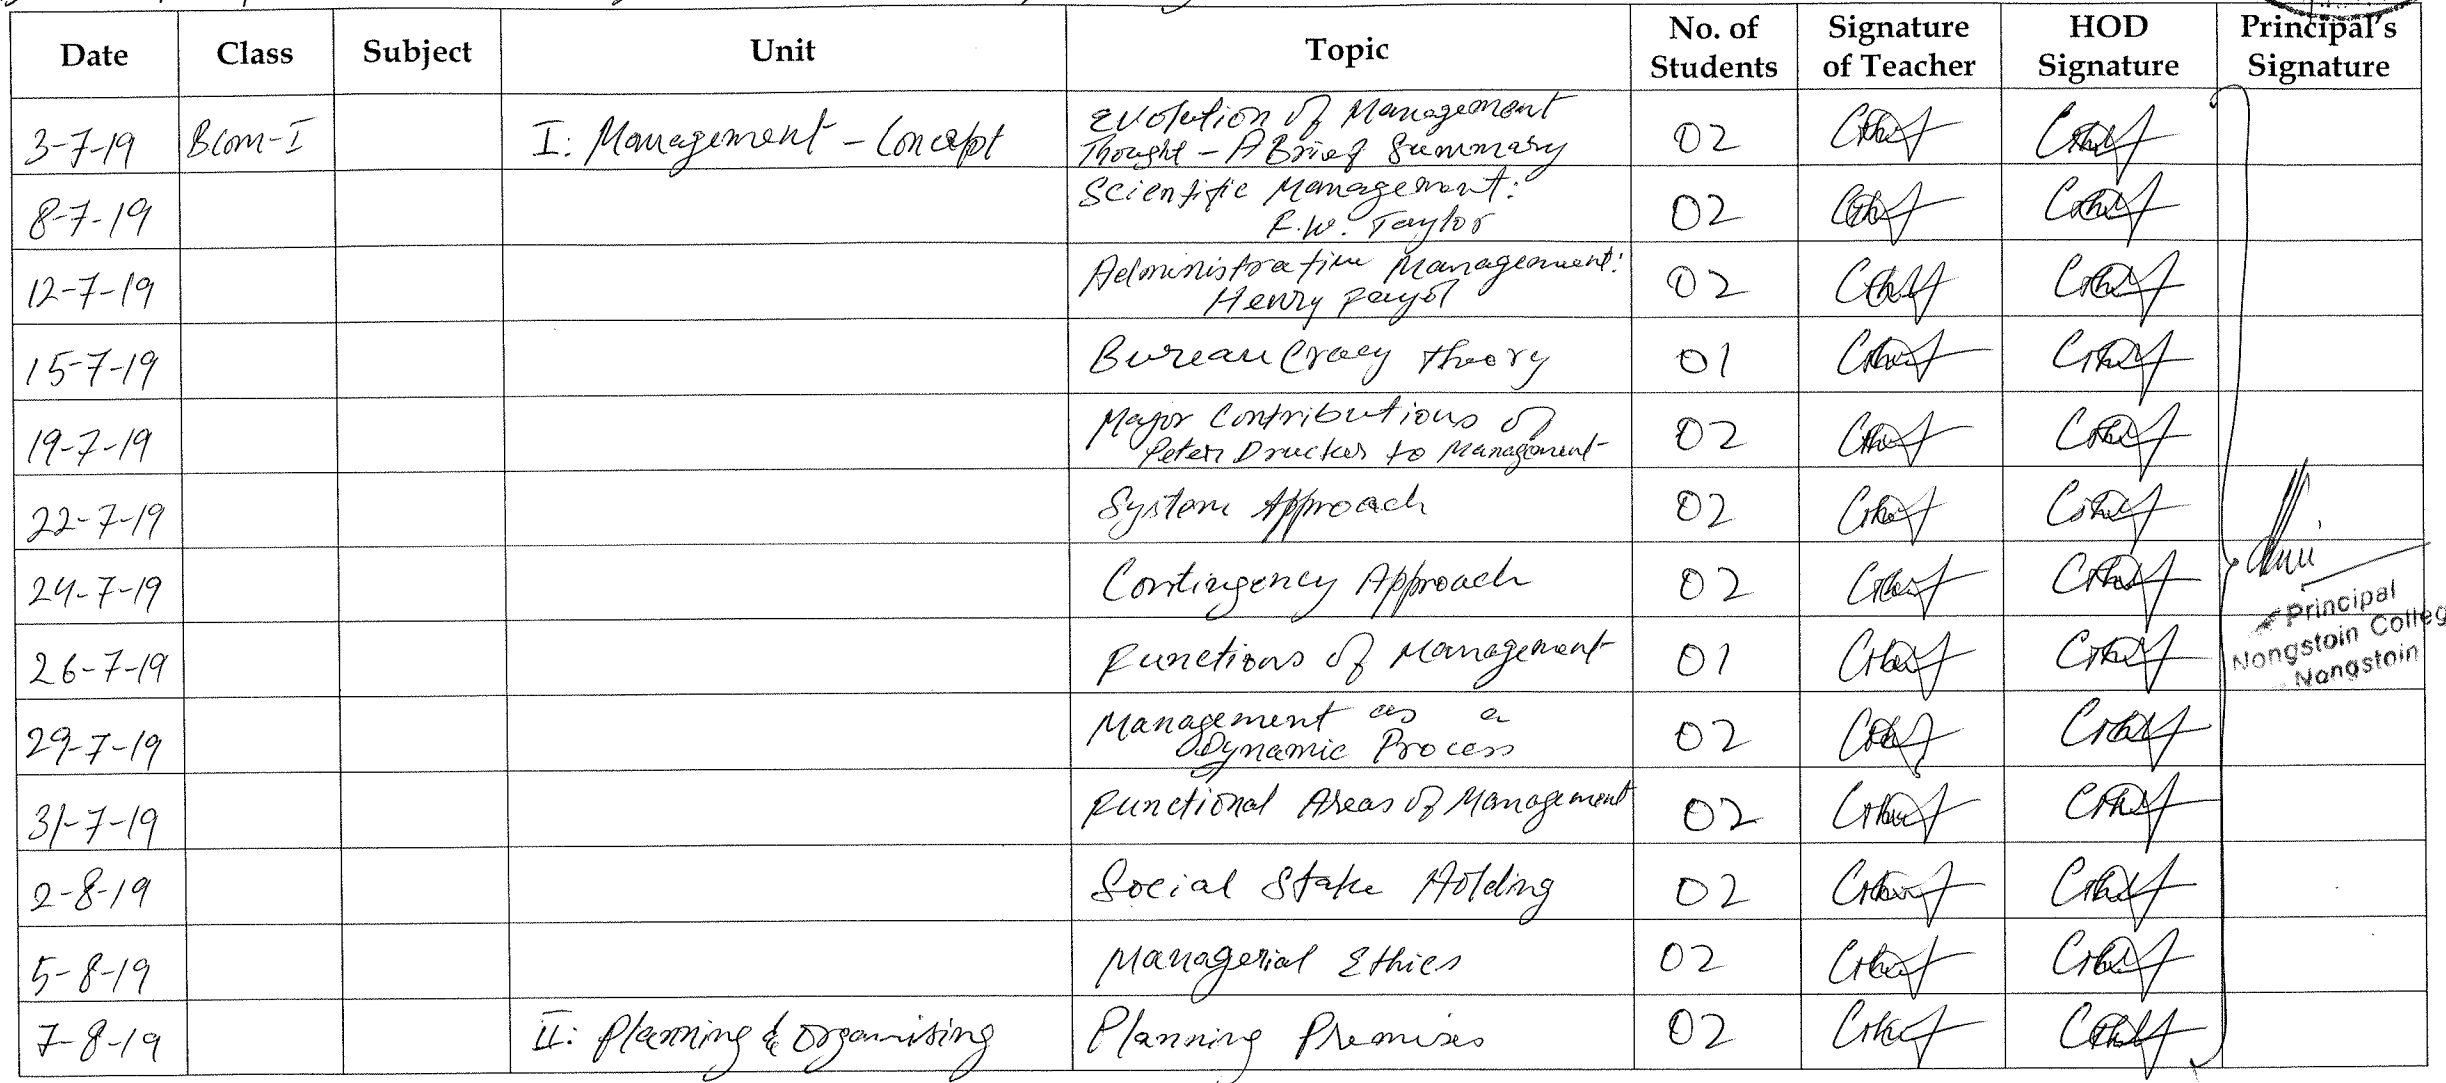 Date Class Subject Unit Topic No. of Students Signature of Teacher HOD Signature Principal's Signature
3-7-19 Bcom-I I: Management - Concept Evolution of Management Thought - A Brief Summary 02
8-7-19 Scientific Management: F.W. Taylor 02
12-7-19 Administrative Management: Henry Fayol 02
15-7-19 Bureaucracy theory 01
19-7-19 Major Contributions of Peter Drucker to Management 02
22-7-19 System Approach 02
24-7-19 Contingency Approach 02
26-7-19 Functions of Management 01
29-7-19 Management as a Dynamic Process 02
31-7-19 Functional Areas of Management 02
2-8-19 Social Stake Holding 02
5-8-19 Managerial Ethics 02
7-8-19 II: Planning & Organising Planning Premises 02
Principal
Nongstoin Colleg
Nongstoin